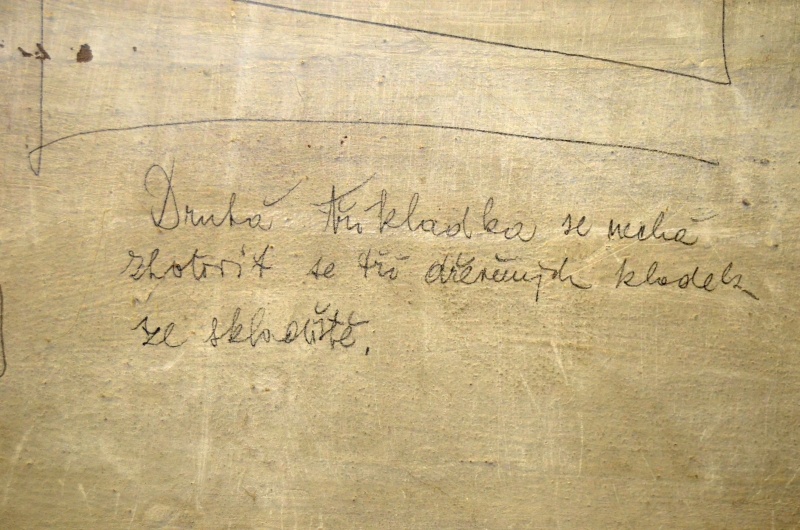 Druhá tříkladka se nechá
zhotovit se tří dřevěných kladek
ze skladiště.